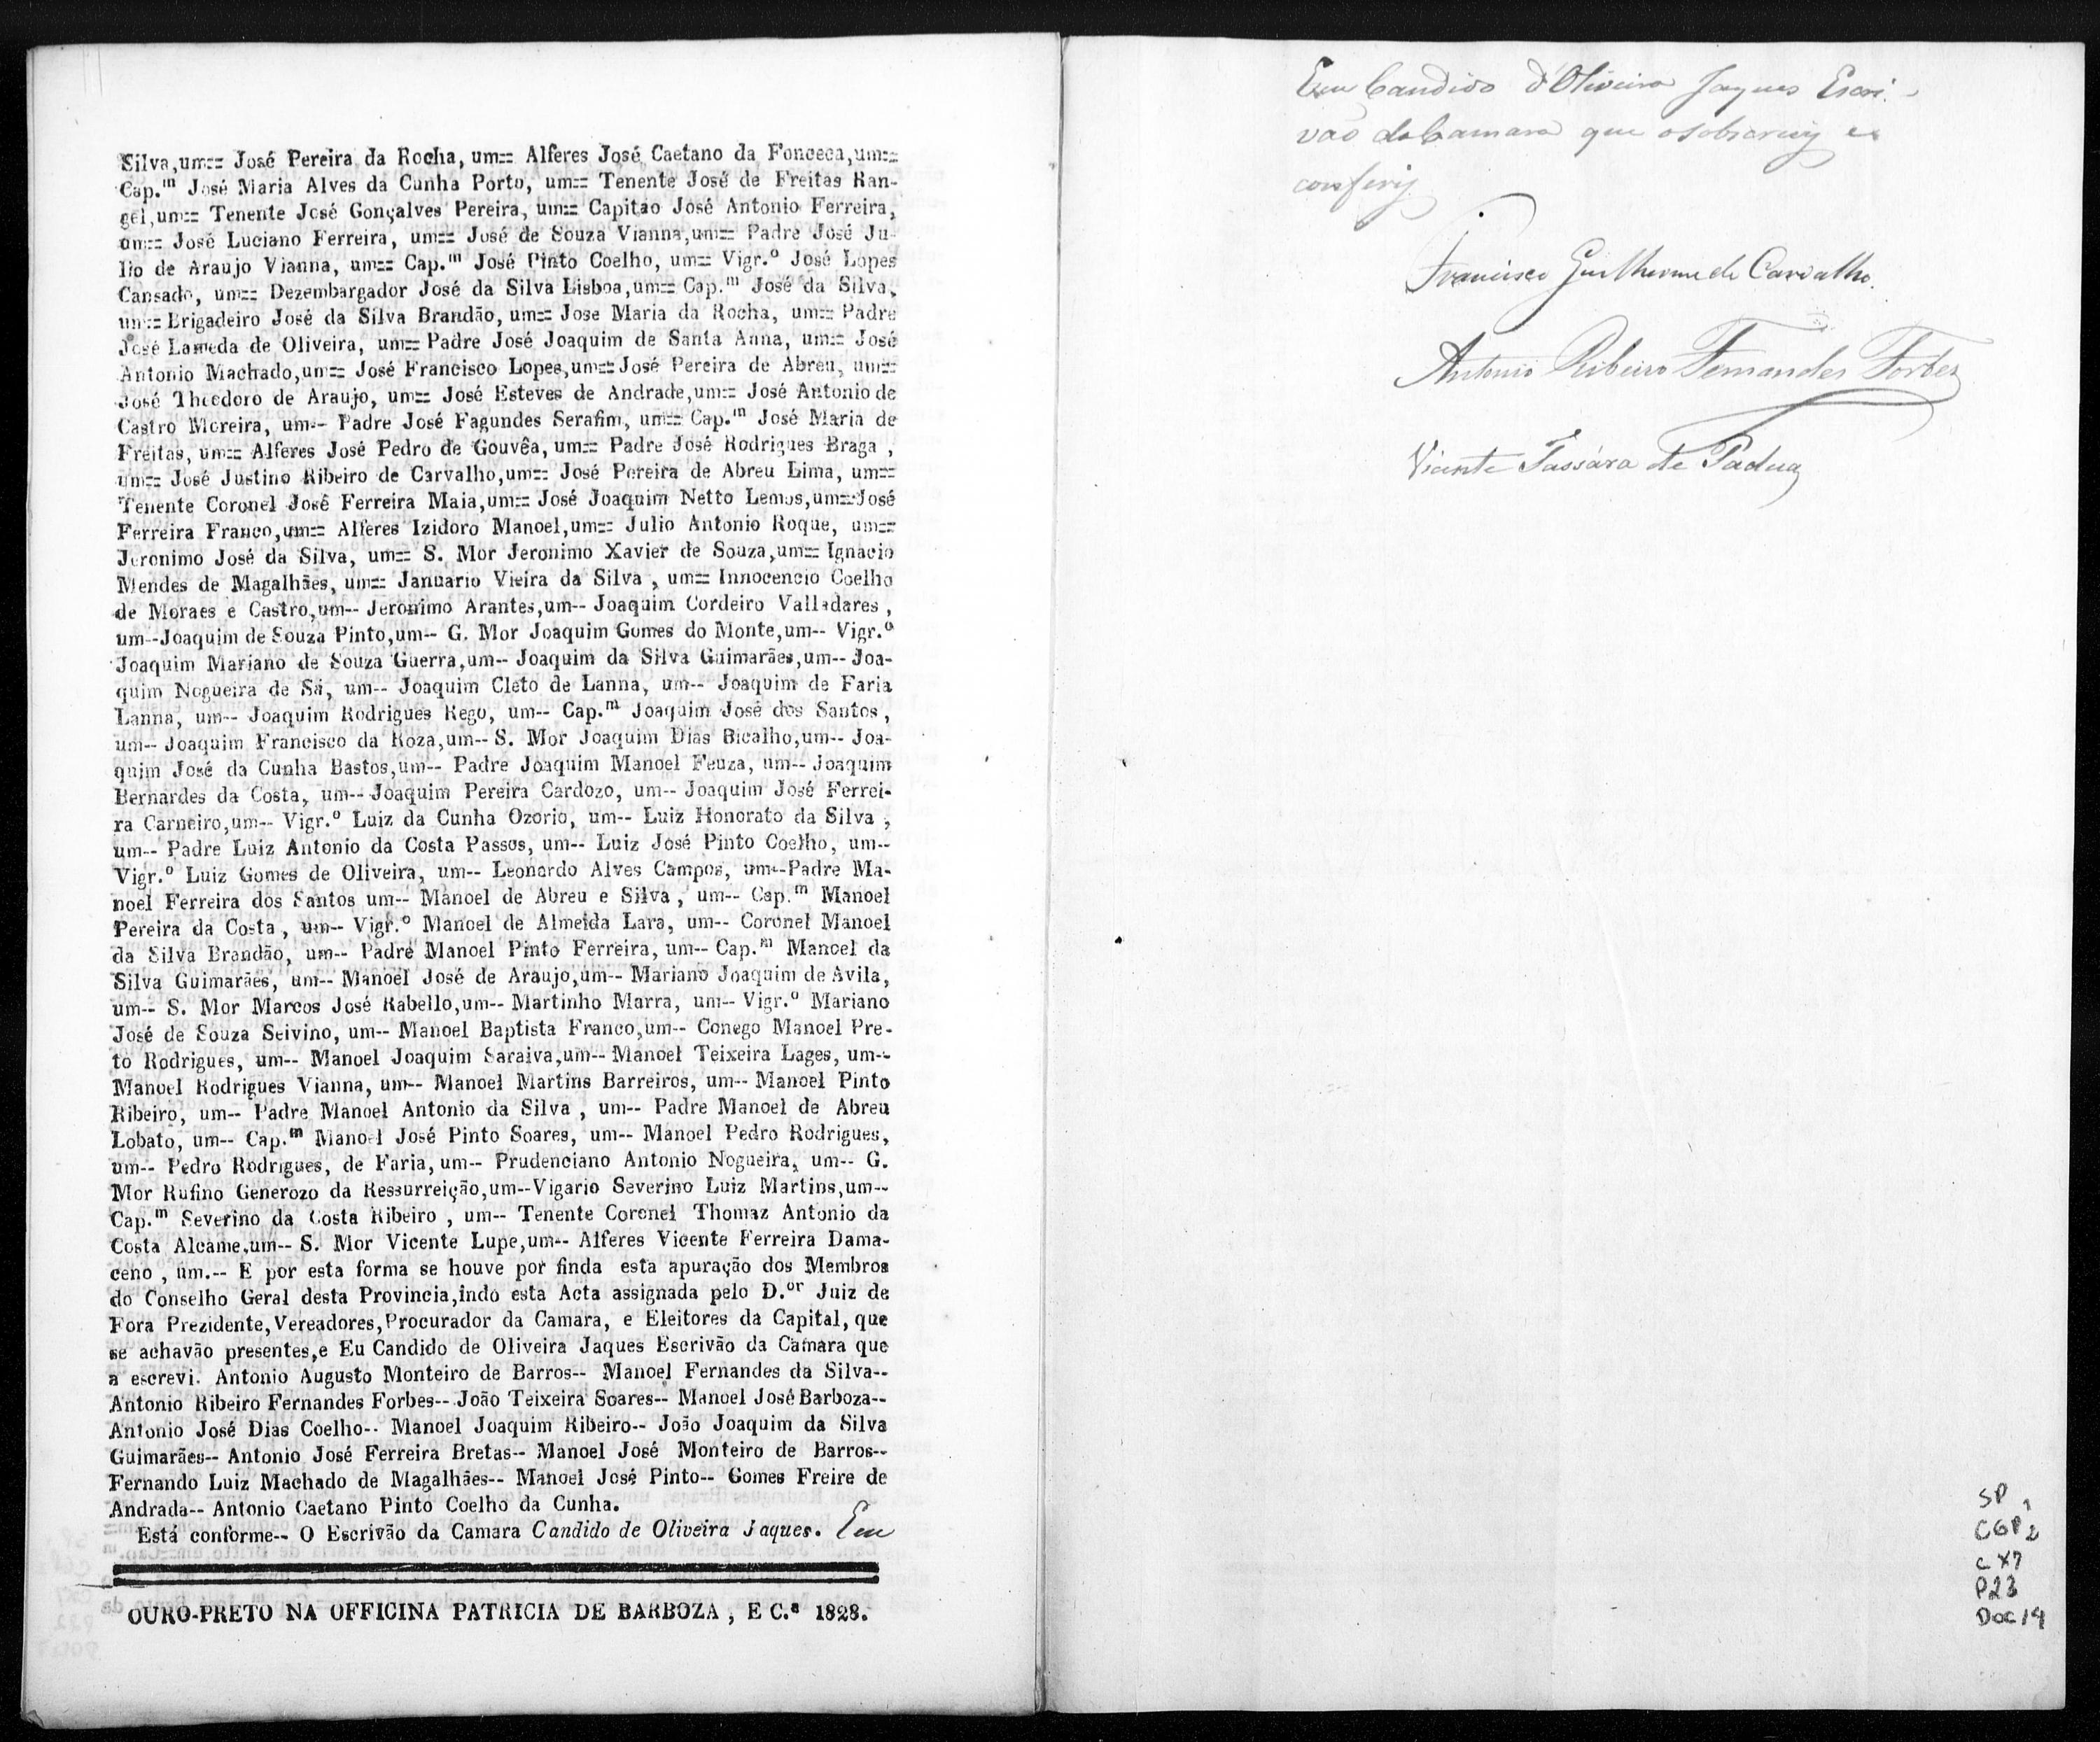 Silva,um== José Pereira da Rocha, um== Alferes José Caetano da Fonceca,um==
Cap.m José Maria Alves da Cunha Porto, um== Tenente José de Freitas Ran-
gel,um== Tenente José Gonçalves Pereira, um== Capitão José Antonio Ferreira,
um== José Luciano Ferreira, um== José de Souza Vianna,um== Padre José Ju-
lio de Araujo Vianna, um== Cap.m José Pinto Coelho, um== Vigr.o José Lopes
Cansado, um== Dezembargador José da Silva Lisboa,um== Cap.m José da Silva,
um== Brigadeiro José da Silva Brandão, um== Jose Maria da Rocha, um== Padre
José Lameda de Oliveira, um== Padre José Joaquim de Santa Anna, um== José
Antonio Machado,um== José Francisco Lopes,um== José Pereira de Abreu, um==
José Theodoro de Araujo, um== José Esteves de Andrade,um== José Antonio de
Castro Moreira, um-- Padre José Fagundes Serafim, um== Cap.m José Maria de
Freitas, um== Alferes José Pedro de Gouvêa, um== Padre José Rodrigues Braga ,
um== José Justino Ribeiro de Carvalho,um== José Pereira de Abreu Lima, um==
Tenente Coronel José Ferreira Maia,um== José Joaquim Netto Lemos,um==José
Ferreira Franco,um== Alferes Izidoro Manoel,um== Julio Antonio Roque, um==
Jeronimo José da Silva, um== S. Mor Jeronimo Xavier de Souza,um== Ignacio
Mendes de Magalhães, um== Januario Vieira da Silva , um== Innocencio Coelho
de Moraes e Castro,um-- Jeronimo Arantes,um-- Joaquim Cordeiro Valladares ,
um--Joaquim de Souza Pinto,um-- G. Mor Joaquim Gomes do Monte,um-- Vigr.o
Joaquim Mariano de Souza Guerra,um-- Joaquim da Silva Guimarães,um-- Joa-
quim Nogueira de Sá, um-- Joaquim Cleto de Lanna, um-- Joaquim de Faria
Lanna, um-- Joaquim Rodrigues Rego, um-- Cap.m Joaquim José dos Santos ,
um-- Joaquim Francisco da Roza,um-- S. Mor Joaquim Dias Bicalho,um-- Joa-
quim José da Cunha Bastos,um-- Padre Joaquim Manoel Feuza, um-- Joaquim
Bernardes da Costa, um-- Joaquim Pereira Cardozo, um-- Joaquim José Ferrei-
ra Carneiro,um-- Vigr.o Luiz da Cunha Ozorio, um-- Luiz Honorato da Silva ,
um-- Padre Luiz Antonio da Costa Passos, um-- Luiz José Pinto Coelho, um--
Vigr.o Luiz Gomes de Oliveira, um-- Leonardo Alves Campos, um--Padre Ma-
noel Ferreira dos Santos um-- Manoel de Abreu e Silva , um-- Cap.m Manoel
Pereira da Costa , um-- Vigr.o Manoel de Almeida Lara, um-- Coronel Manoel
da Silva Brandão, um-- Padre Manoel Pinto Ferreira, um-- Cap.m Manoel da
Silva Guimarães, um-- Manoel José de Araujo,um-- Mariano Joaquim de Avila,
um-- S. Mor Marcos José Rabello,um-- Martinho Marra, um-- Vigr.o Mariano
José de Souza Seivino, um-- Manoel Baptista Franco,um-- Conego Manoel Pre-
to Rodrigues, um-- Manoel Joaquim Saraiva,um-- Manoel Teixeira Lages, um--
Manoel Rodrigues Vianna, um-- Manoel Martins Barreiros, um-- Manoel Pinto
Ribeiro, um-- Padre Manoel Antonio da Silva , um-- Padre Manoel de Abreu
Lobato, um-- Cap.m Manoel José Pinto Soares, um-- Manoel Pedro Rodrigues,
um-- Pedro Rodrigues, de Faria, um-- Prudenciano Antonio Nogueira, um-- G.
Mor Rufino Generozo da Ressurreição,um--Vigario Severino Luiz Martins,um--
Cap.m Severino da Costa Ribeiro , um-- Tenente Coronel Thomaz Antonio da
Costa Alcame,um-- S. Mor Vicente Lupe,um-- Alferes Vicente Ferreira Dama-
ceno , um.-- E por esta forma se houve por finda esta apuração dos Membros
do Conselho Geral desta Provincia,indo esta Acta assignada pelo D.or Juiz de
Fora Prezidente,Vereadores,Procurador da Camara, e Eleitores da Capital, que
se achavão presentes,e Eu Candido de Oliveira Jaques Escrivão da Camara que
a escrevi. Antonio Augusto Monteiro de Barros-- Manoel Fernandes da Silva--
Antonio Ribeiro Fernandes Forbes-- João Teixeira Soares-- Manoel José Barboza--
Antonio José Dias Coelho-- Manoel Joaquim Ribeiro-- João Joaquim da Silva
Guimarães-- Antonio José Ferreira Bretas-- Manoel José Monteiro de Barros--
Fernando Luiz Machado de Magalhães-- Manoel José Pinto-- Gomes Freire de
Andrada-- Antonio Caetano Pinto Coelho da Cunha.
Está conforme-- O Escrivão da Camara Candido de Oliveira Jaques. Eu
OURO-PRETO NA OFFICINA PATRICIA DE BARBOZA , E C.a 1828.
Eu Candido d'Oliveira Jaques Escri-
vão da Camara que osobscrevy e
conferiy
Francisco Guilherme de Carvalho.
Antonio Ribeiro Fernandes Forbes
Vicente Tassára de Padua
SP 1
CGP 2
CX7
P23
Doc 14